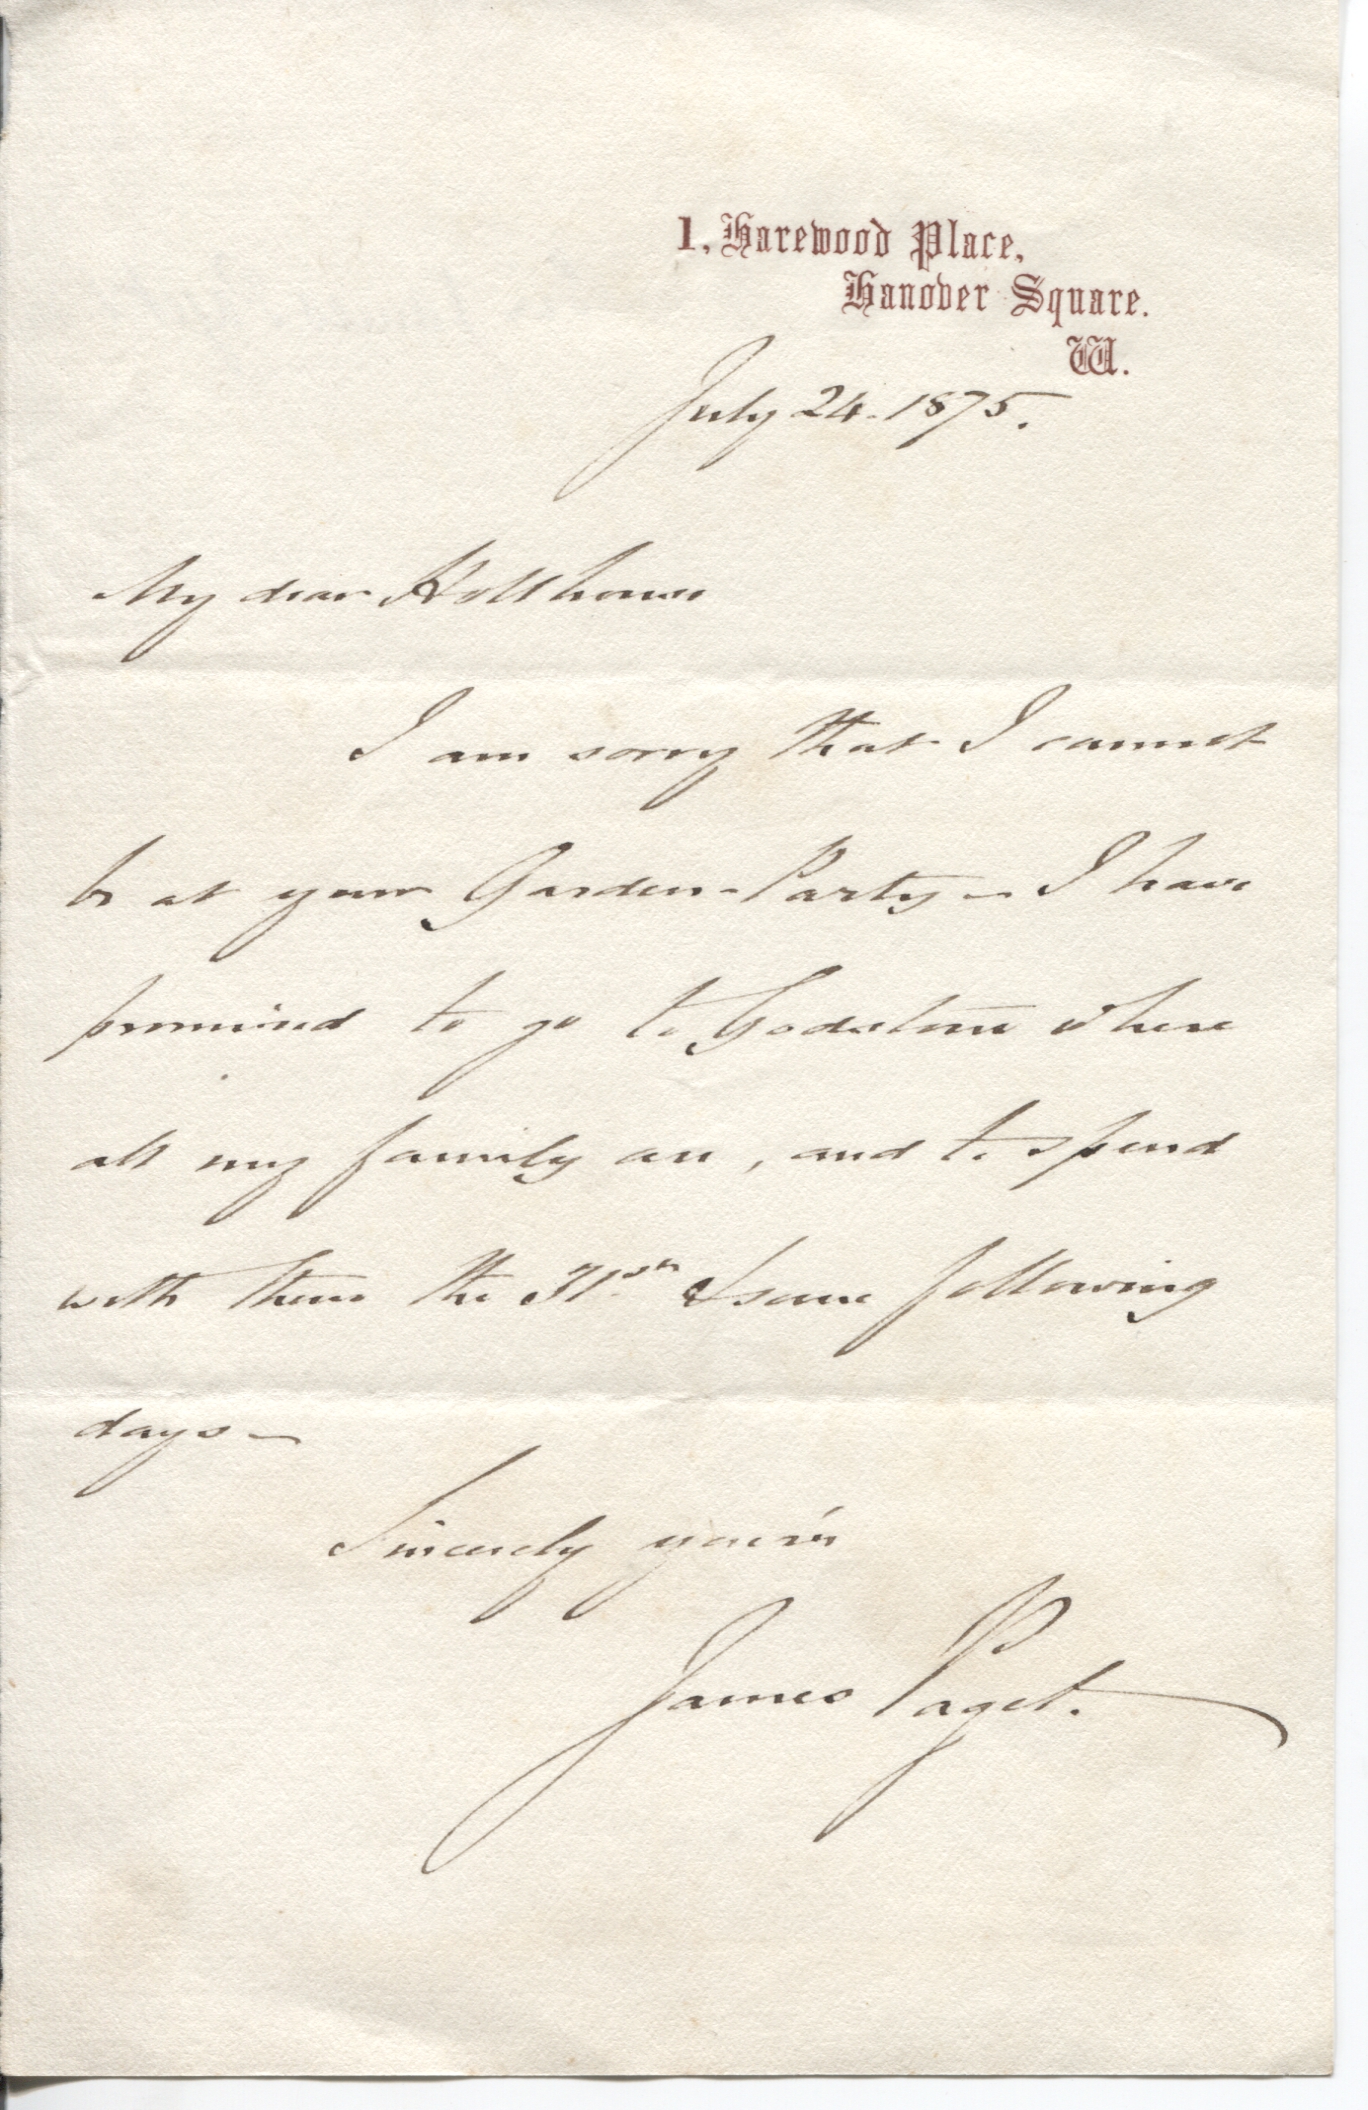 1, Harewood Place,
Hanover Square.
W.
July 24. 1875.
My dear Holthouse
I am sorry that I cannot
be at your Garden-Party – I have
promised to go to Godstone where
all my family are, and to spend
with them the 31st & some following
days –
Sincerely your's
James Paget.